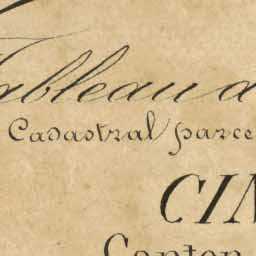 Tableau d
Cadastral parce
CIN
Canton